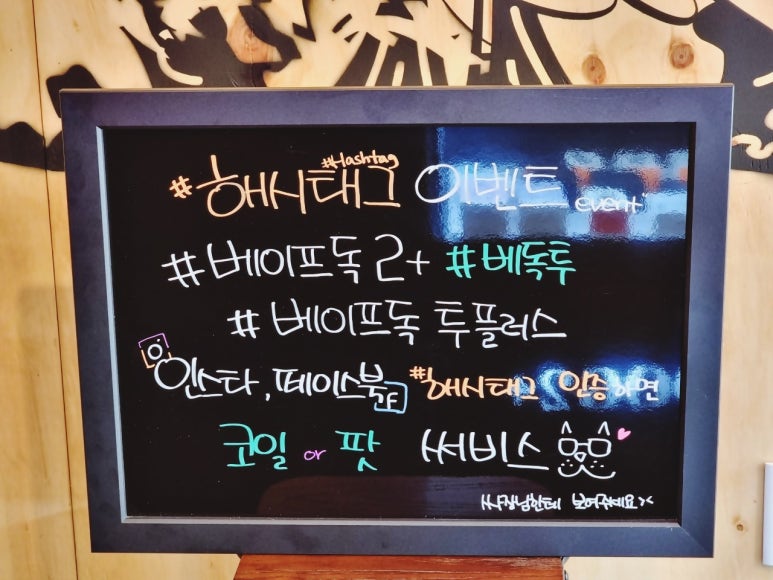 #Hashtag
#해시태그 이벤트 event
#베이프독2+ #베독투
#베이프독 투플러스
인스타, 페이스북 F #해시태그 인증하면
코일 or 팟 써비스
사장님한테 보여주세요><